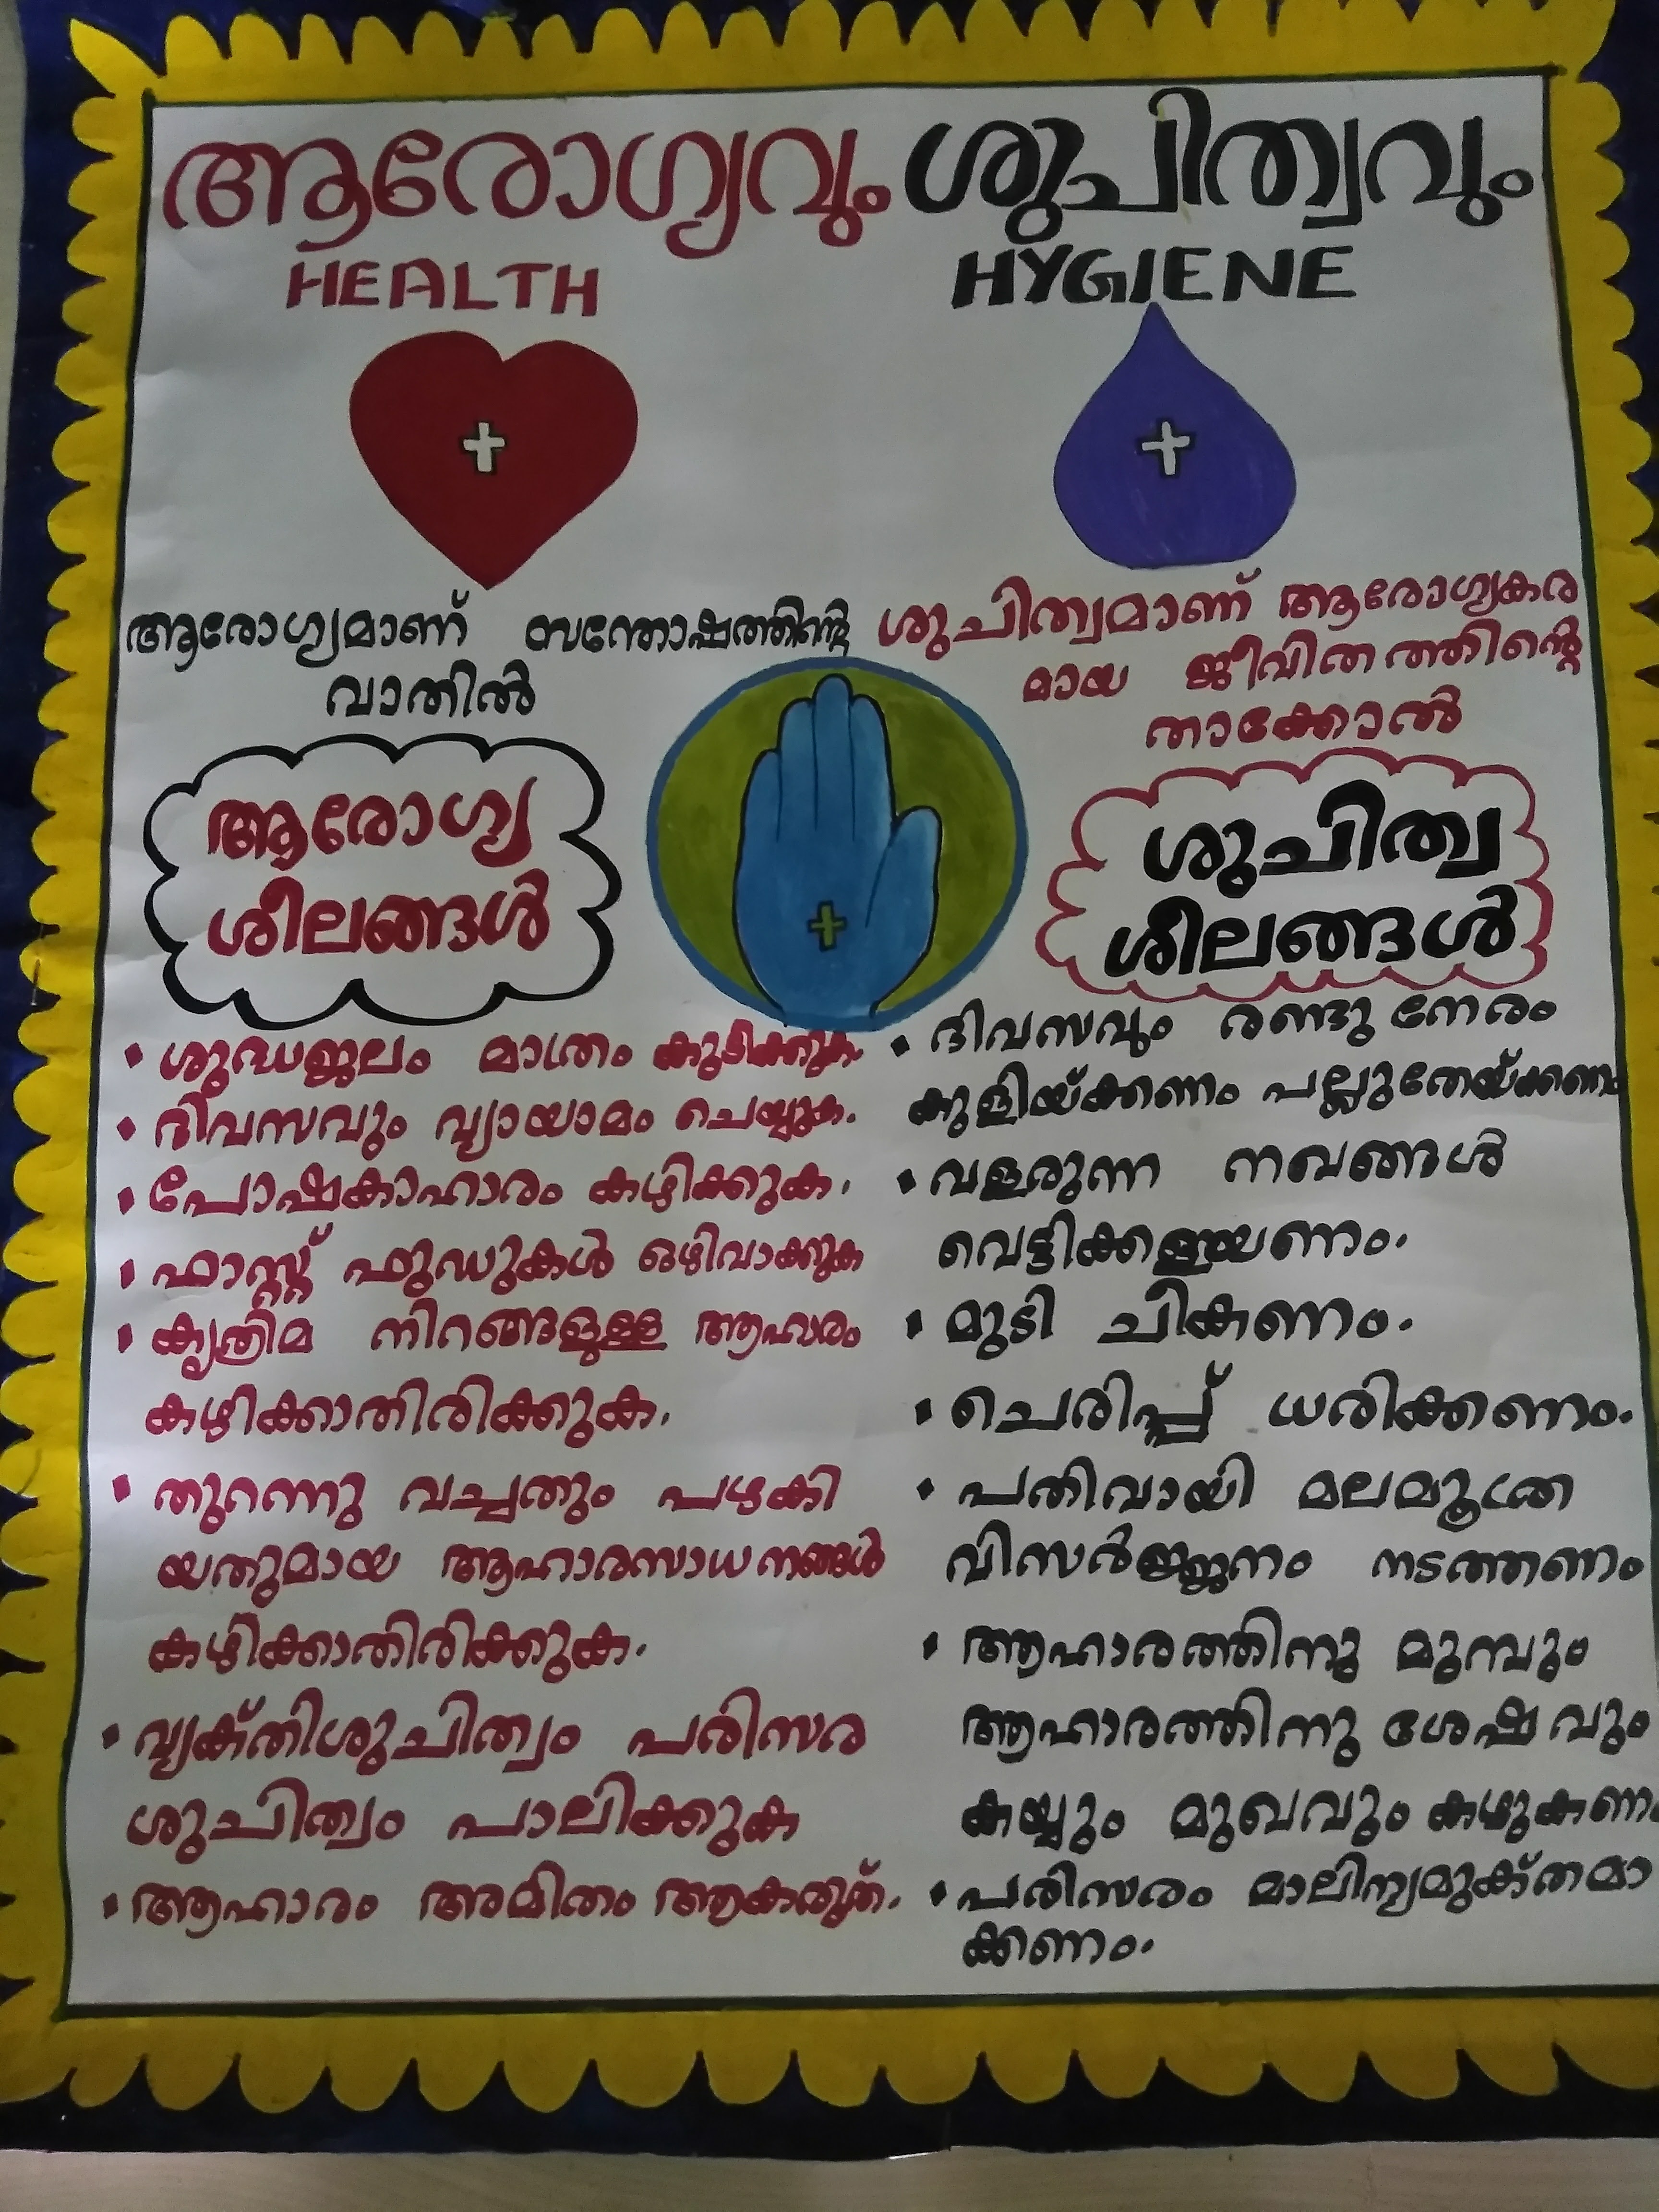 ആരോഗ്യവും ശുചിത്വവും
HEALTH
HYGIENE
ആരോഗ്യമാണ് സന്തോഷത്തിന്റെ
വാതിൽ
ശുചിത്വമാണ് ആരോഗ്യകര
മായ ജീവിതത്തിന്റെ
താക്കോൽ
ആരോഗ്യ
ശീലങ്ങൾ
• ശുദ്ധജലം മാത്രം കുടിക്കുക.
• ദിവസവും വ്യായാമം ചെയ്യുക.
• പോഷകാഹാരം കഴിക്കുക.
• ഫാസ്റ്റ് ഫുഡുകൾ ഒഴിവാക്കുക
• കൃത്രിമ നിറങ്ങളുള്ള ആഹാരം
കഴിക്കാതിരിക്കുക.
• തുറന്നു വച്ചതും പഴകി
യതുമായ ആഹാരസാധനങ്ങൾ
കഴിക്കാതിരിക്കുക.
• വ്യക്തിശുചിത്വം പരിസര
ശുചിത്വം പാലിക്കുക
• ആഹാരം അമിതം ആകരുത്.
ശുചിത്വ
ശീലങ്ങൾ
• ദിവസവും രണ്ടു നേരം
കുളിയ്ക്കണം പല്ലുതേയ്ക്കണം
• വളരുന്ന നഖങ്ങൾ
വെട്ടിക്കളയണം.
• മുടി ചീകണം.
• ചെരിപ്പ് ധരിക്കണം.
• പതിവായി മലമൂത്ര
വിസർജ്ജനം നടത്തണം
• ആഹാരത്തിനു മുമ്പും
ആഹാരത്തിനു ശേഷവും
കയ്യും മുഖവും കഴുകണം
• പരിസരം മാലിന്യമുക്തമാ
ക്കണം.